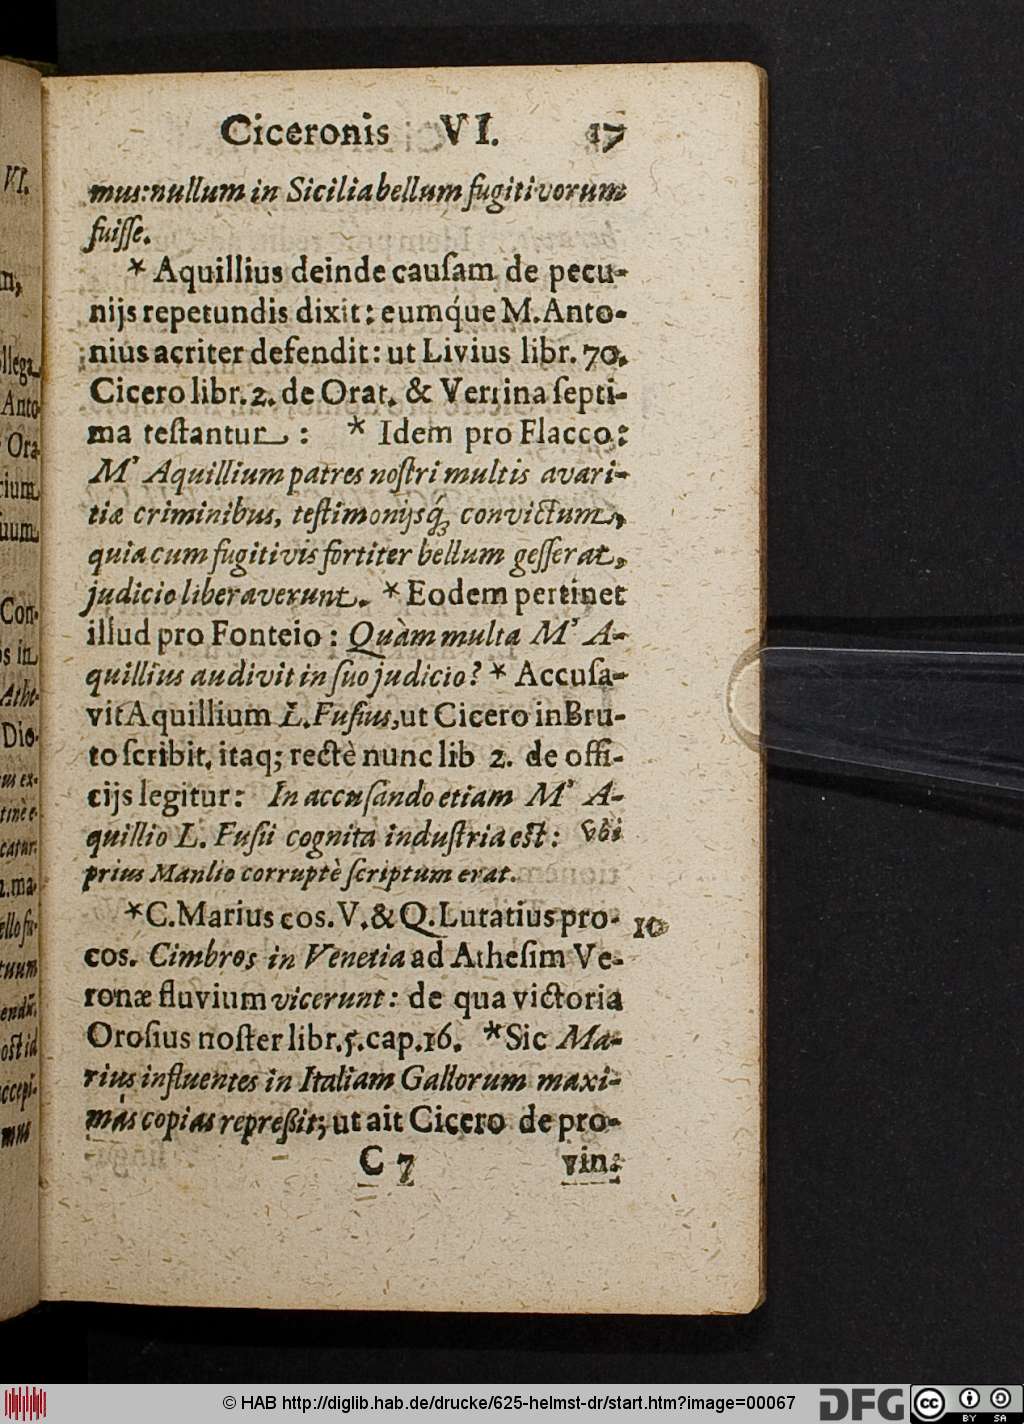 Ciceronis VI. 17
mus: nullum in Sicilia bellum fugitivorum
fuiſſe.
* Aquillius deinde cauſam de pecu-
nijs repetundis dixit: eumq́ue M. Anto-
nius acriter defendit: ut Livius libr. 70.
Cicero libr. 2. de Orat. & Verrina ſepti-
ma teſtantur: * Idem pro Flacco:
M' Aquillium patres noſtri multis avari-
tiæ criminibus, teſtimonijsq́; convictum,
quia cum fugitivis fortiter bellum geſſerat,
judicio liberaverunt. * Eodem pertinet
illud pro Fonteio: Quàm multa M' A-
quillius audivit in ſuo judicio? * Accuſa-
vit Aquillium L. Fuſius, ut Cicero in Bru-
to ſcribit. itaq; rectè nunc lib 2. de offi-
cijs legitur: In accuſando etiam M' A-
quillio L. Fuſii cognita induſtria eſt: vbi
prius Manlio corruptè ſcriptum erat.
* C. Marius cos. V. & Q. Lutatius pro- 10
cos. Cimbros in Venetia ad Atheſim Ve-
ronæ fluvium vicerunt: de qua victoria
Oroſius noſter libr. 5. cap. 16. * Sic Ma-
rius influentes in Italiam Gallorum maxi-
mas copias repreßit; ut ait Cicero de pro-
C 7 vin-
VI.
m,
llega
Anto
Ora
cium
uum
Con-
os in
Athe-
Dio-
us ex-
tinè e-
catur:
2. ma-
ello fu-
tuum
endũ.
oſt id
ccepi-
mus
© HAB http://diglib.hab.de/drucke/625-helmst-dr/start.htm?image=00067
DFG
cc
BY SA